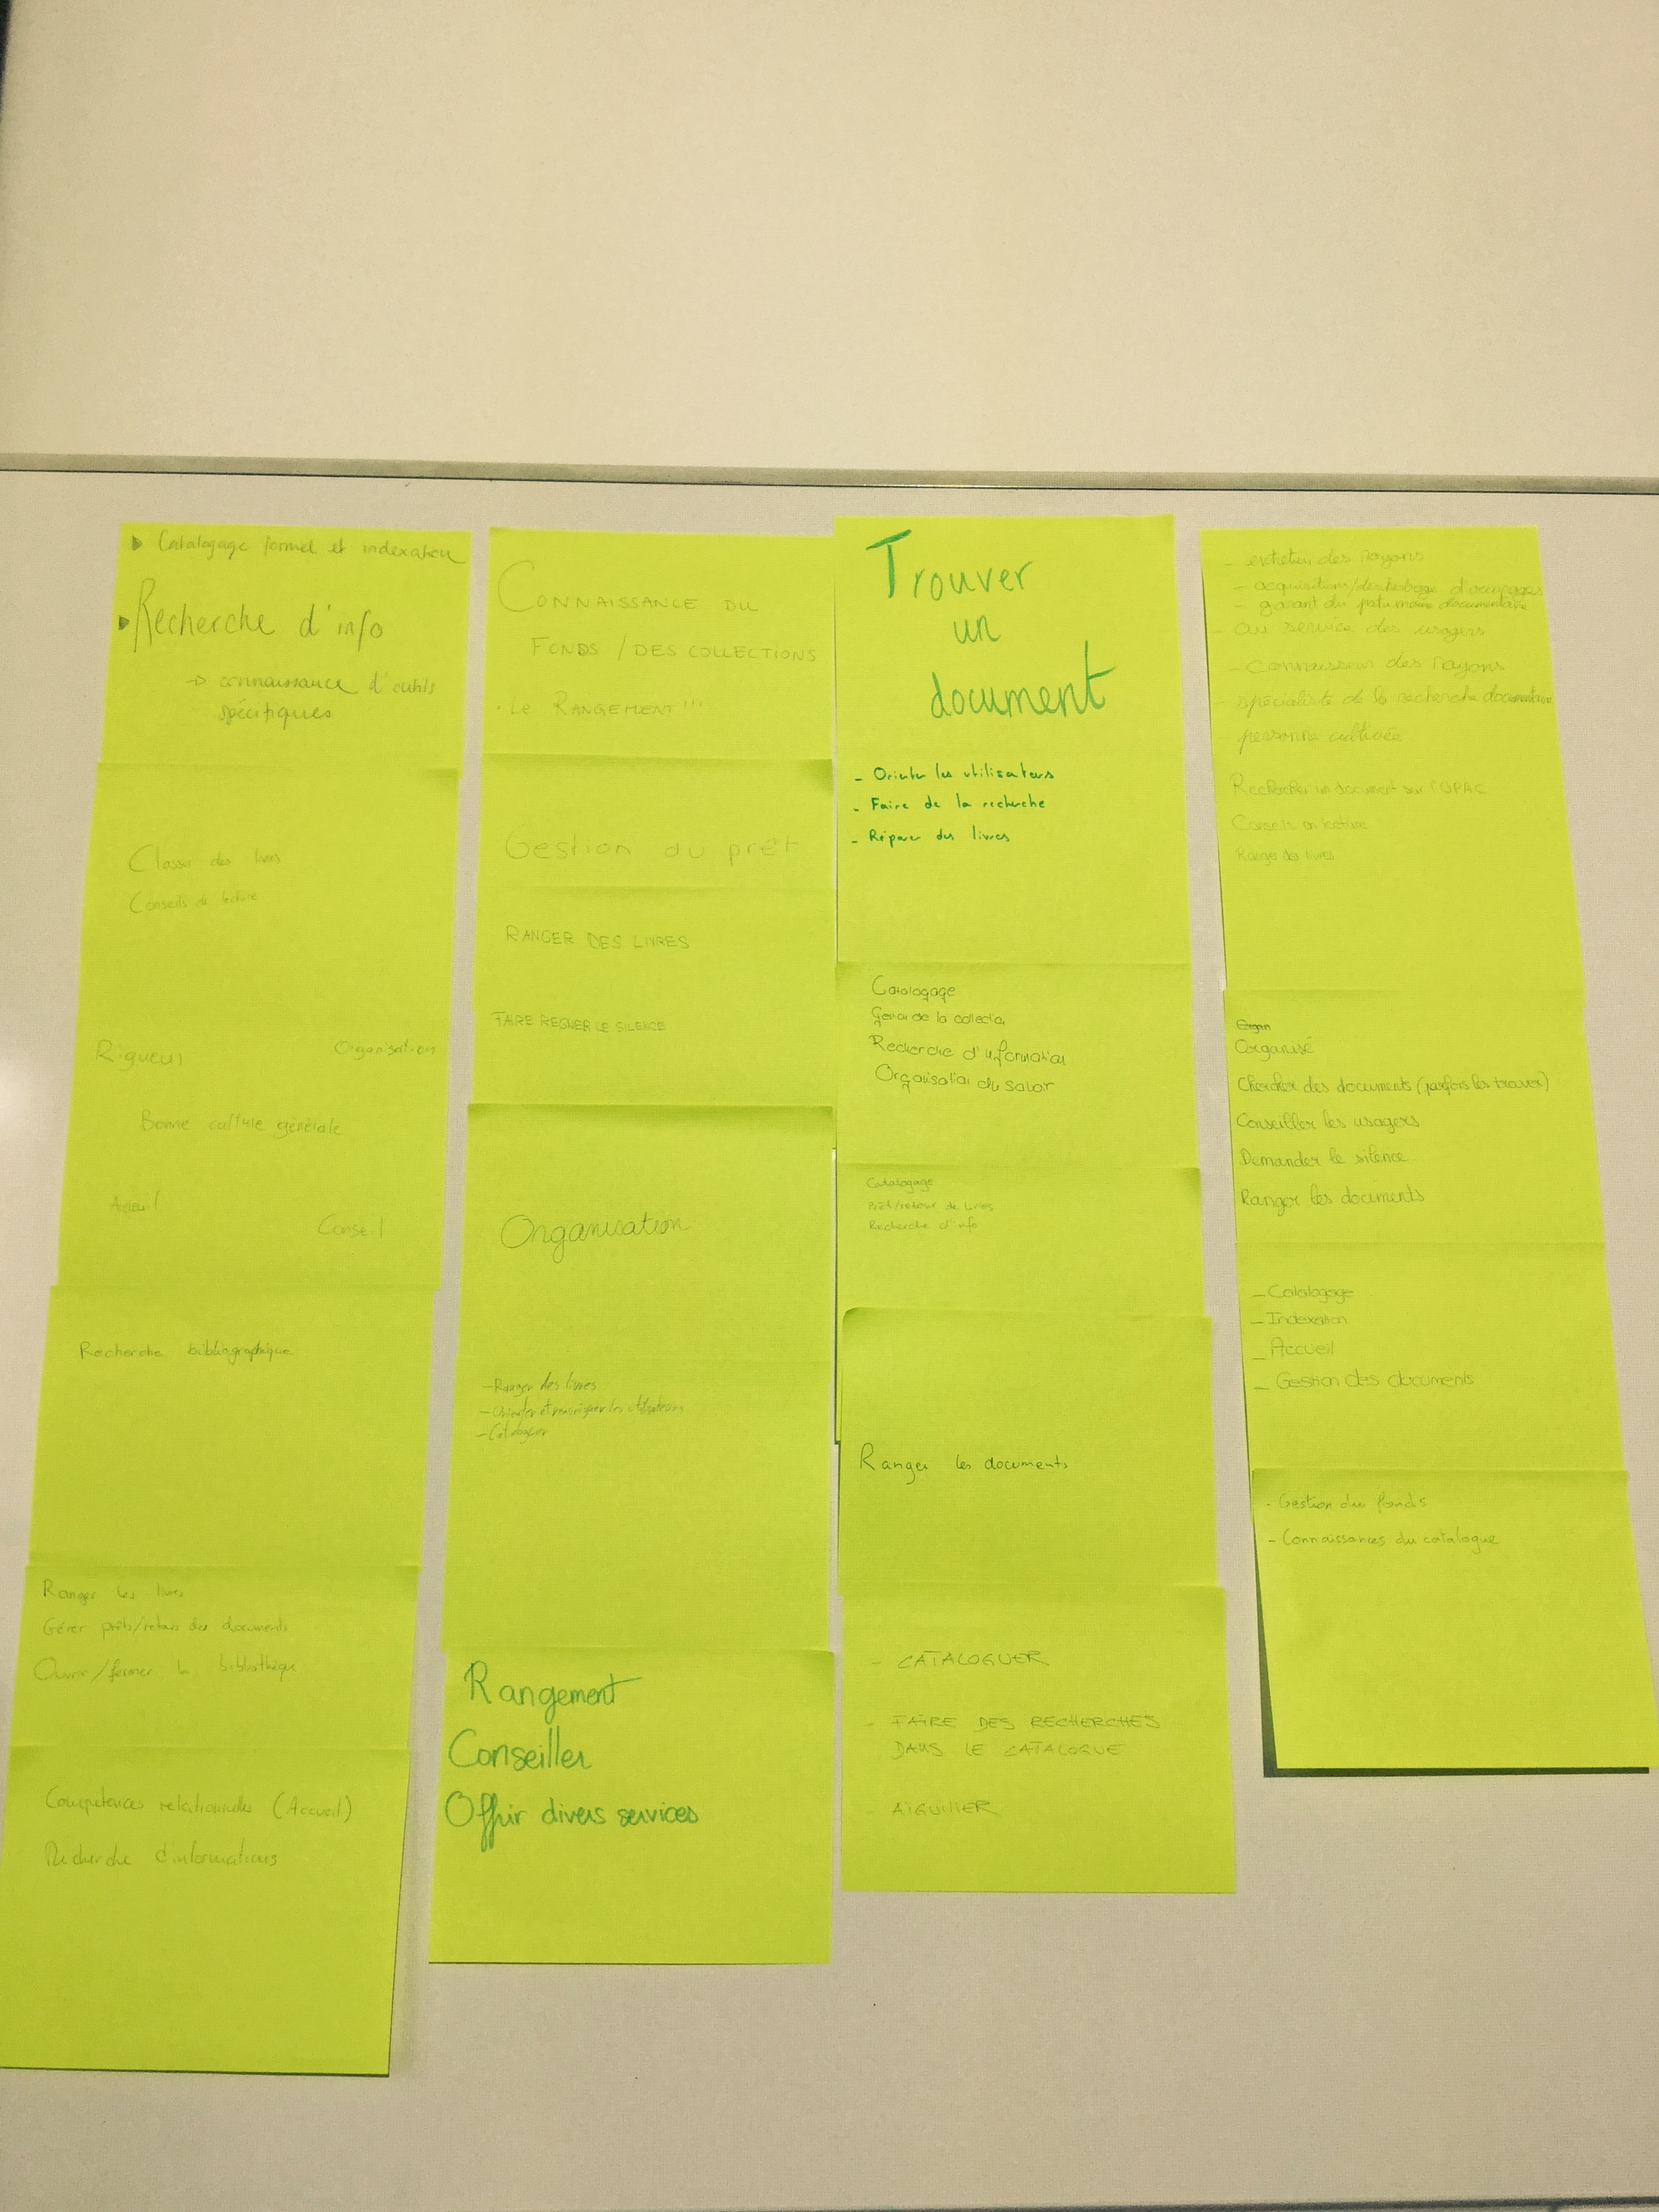 Catalogage formel et indexation
Recherche d'info
→ connaissance d'outils
spécifiques
Classer des livres
Conseils de lecture
Rigueur Organisation
Bonne culture générale
Accueil
Conseil
Recherche bibliographique
Ranger les livres
Gérer prêts/retours des documents
Ouvrir/fermer la bibliothèque
Compétences relationnelles (Accueil)
Recherche d'informations
CONNAISSANCE DU
FONDS / DES COLLECTIONS
• LE RANGEMENT!!!
Gestion du prêt
RANGER DES LIVRES
FAIRE REGNER LE SILENCE
Organisation
- Ranger des livres
- Orienter et renseigner les utilisateurs
- Cataloguer
Rangement
Conseiller
Offrir divers services
Trouver
un
document
- Orienter les utilisateurs
- Faire de la recherche
- Réparer des livres
Catalogage
de la collection
Recherche d'information
Organisation du savoir
Catalogage
Prêt/retour de livres
Recherche d'info
Ranger les documents
- CATALOGUER
- FAIRE DES RECHERCHES
DANS LE CATALOGUE
- AIGUILLER
- entretien des rayons
- acquisitions/desherbage d'ouvrages
- garant du patrimoine documentaire
- au service des usagers
- connaisseur des rayons
- spécialiste de la recherche documentaire
- personne cultivée
Rechercher un document sur l'OPAC
Conseils en lecture
Ranger des livres
Organisé
Chercher des documents (parfois les trouver)
Conseiller les usagers
Demander le silence
Ranger les documents
- Catalogage
- Indexation
- Accueil
- Gestion des documents
- Gestion du fonds
- Connaissances du catalogue